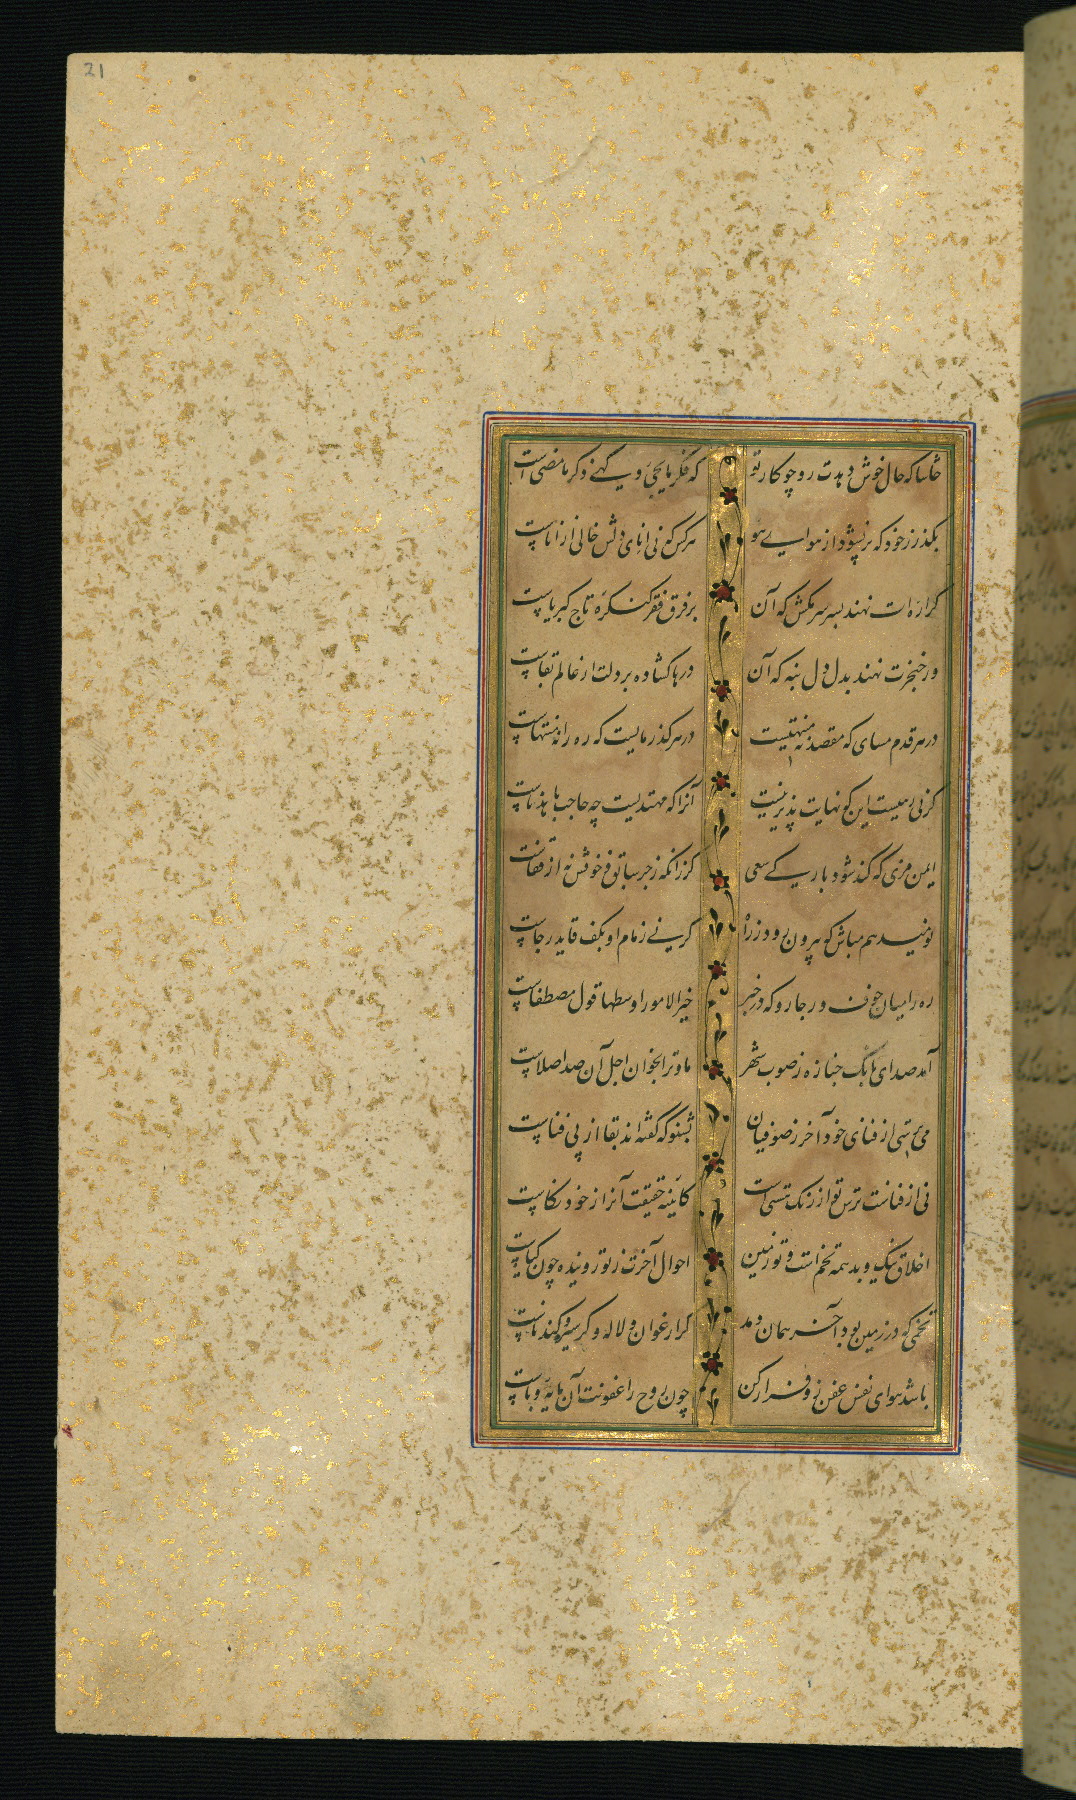 21
حاشا که حال خوش دهدت رو چو کار تو که فکر مایجیٔ و گهی ذکر ما مضی است
بگذر ز خود که بر نشود از هوای هو هر کس که نی انای دلش خالی از اناست
گر اره ات نهند بسر سر مکش که آن بر فرق فقر کنگره تاج کبریاست
ور خنجرت نهند بدل دل بنه که آن درها گشاده بر دلت از عالم بقاست
در هر قدم مسای که مقصد نه منتهیست در هر گذر مایست که ره را نه منتهاست
این کو نهایت پذیر نیست آنرا که مهتدیست چه حاجب باهتداست
ایمن مزی که کند شود بارکی سعی گر زانکه زجر سایق خوفش نه از قفاست
نومید هم مباش که بیرون رود ز راه گر نی زمام او بکف قاید رجاست
ره را میان خوف و رجا رو که در خبر خیر الامور اوسطها قول مصطفاست
آمد صدای بانگ جنازه ز صوب شهر ما و ترا بخوان اجل آن صدا صلاست
می ترسی از فنای خود آخر ز صوفیان بشنو که گفته اند بقا از پی فناست
نی از فناست ترس تو از زنگ تست کایینه حقیقت آنرا ز خود نکاست
اخلاق نیک و بد همه تخم است و تو زمین احوال آخرت ز تو روینده چون گیاست
تخمی که در زمین بود آخر همان دمد گر ارغوان و لاله و گر سیر و گندناست
باشد هوای نفس عفن زو فرار کن چون روح را عفونت آن مایه وباست